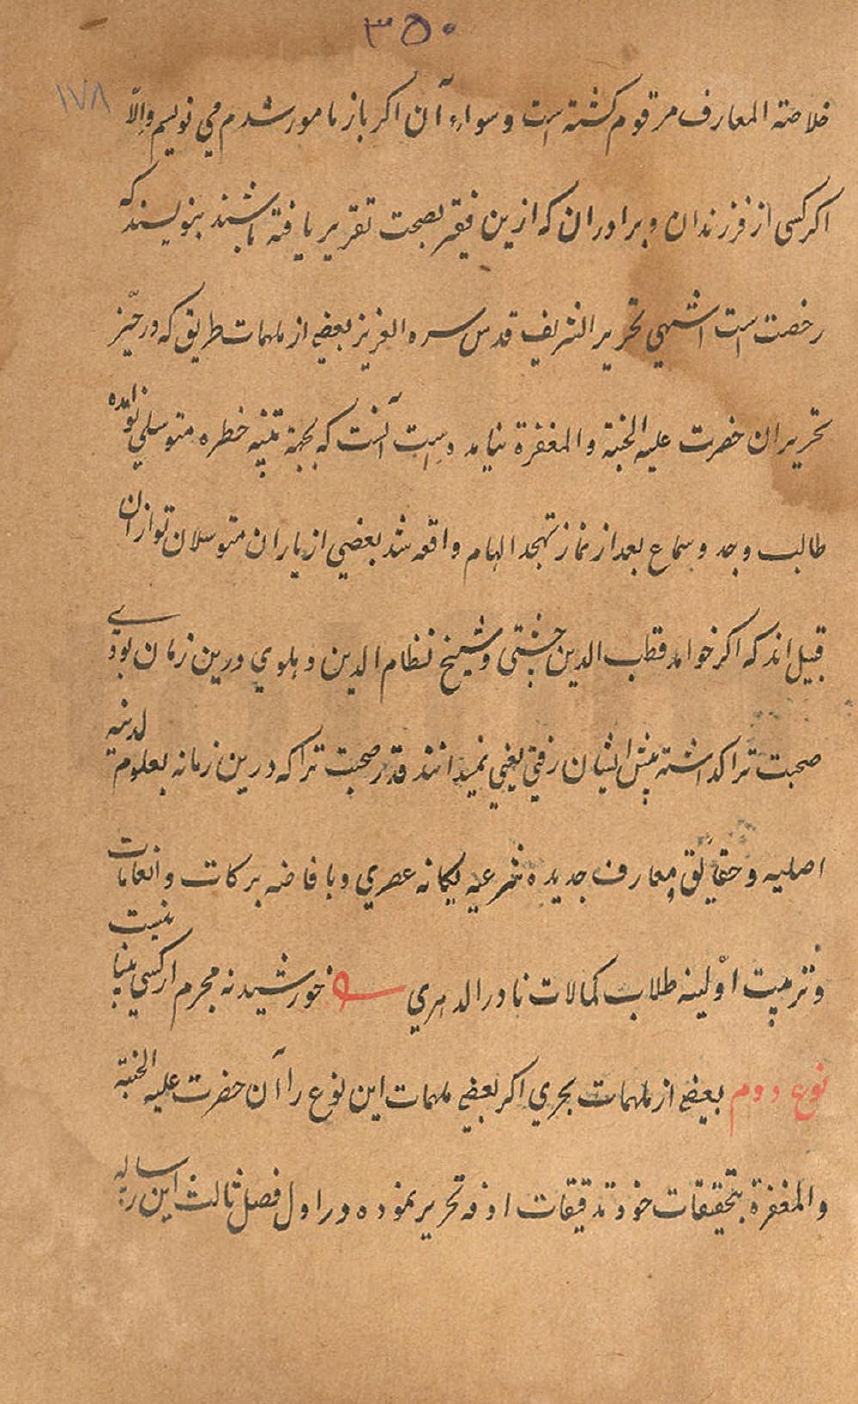 ۳۵۰
۱۷۸
خلاصة المعارف مرقوم کشته است و سواء آن اکر باز مامور شدم می نویسم والّا
اکر کسی از فرزندان و برادران که ازین فقیر بصحت تقریر یافته باشند بنویسند که
رخصت است انتهی تحریر الشریف قدس سره العزیز بعضی از ملهمات طریق که در حیّز
تحریر ان حضرت علیه الجنة والمغفرة نیامده است آنست که بجهة تنبیه خطره متوسلی تواده
طالب وجد و سماع بعد از نماز تهجد الهام واقعه شد بعضی از یاران متوسلان تو ازان
قبیل اند که اکر خواجه قطب الدین چشتی و شیخ نظام الدین دهلوی درین زمان بودی
صحبت ترا کذاشته پیش ایشان رفتی یعنی نمیدانند قدر صحبت ترا که درین زمانه بعلوم لدنیه
اصلیه و حقایق و معارف جدیده شرعیه یکانه عصری و بافاضه برکات و انعامات
و تربیت اوّلینه طلاب کمالات نادر الدهری خورشید نه مجرم ار کسی بینا نیست
نوع دوم بعضی از ملهمات بحری اکر بعضی ملهمات این نوع را آن حضرت علیه الجنة
والمغفرة بتحقیقات خود تدقیقات تحریر نموده در اول فصل ثالث این رساله